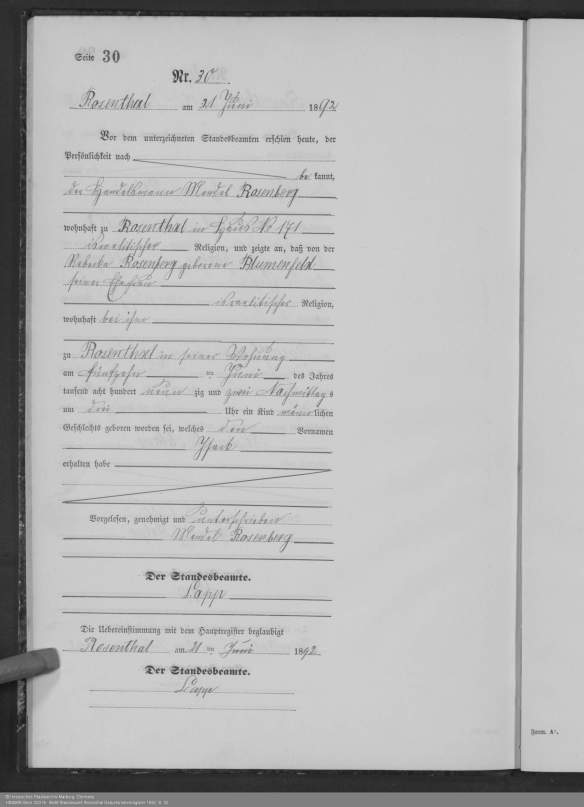 Seite 30
Nr. 30
Rosenthal am 21 Juni 1892
Vor dem unterzeichneten Standesbeamten erschien heute, der
Persönlichkeit nach
be kannt,
der Handelsmann Mendel Rosenberg
wohnhaft zu Rosenthal im Haus No 171
israelitischer Religion, und zeigte an, daß von der
Rebecka Rosenberg geborene Blumenfeld
seiner Ehefrau
israelitischer Religion,
wohnhaft bei ihm
zu Rosenthal in seiner Wohnung
am fünfzehn ten Juni des Jahres
tausend acht hundert neun zig und zwei Nachmittag s
um drei Uhr ein Kind männ lichen
Geschlechts geboren worden sei, welches den Vornamen
erhalten habe
Vorgelesen, genehmigt und unterschrieben
Mendel Rosenberg
Der Standesbeamte.
Lapp
Die Uebereinstimmung mit dem Hauptregister beglaubigt
Rosenthal am 21 ten Juni 1892
Der Standesbeamte.
Lapp
Form. A¹.